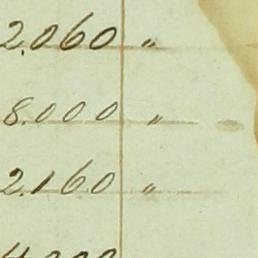 2.060 "
8.000 "
2.160 "